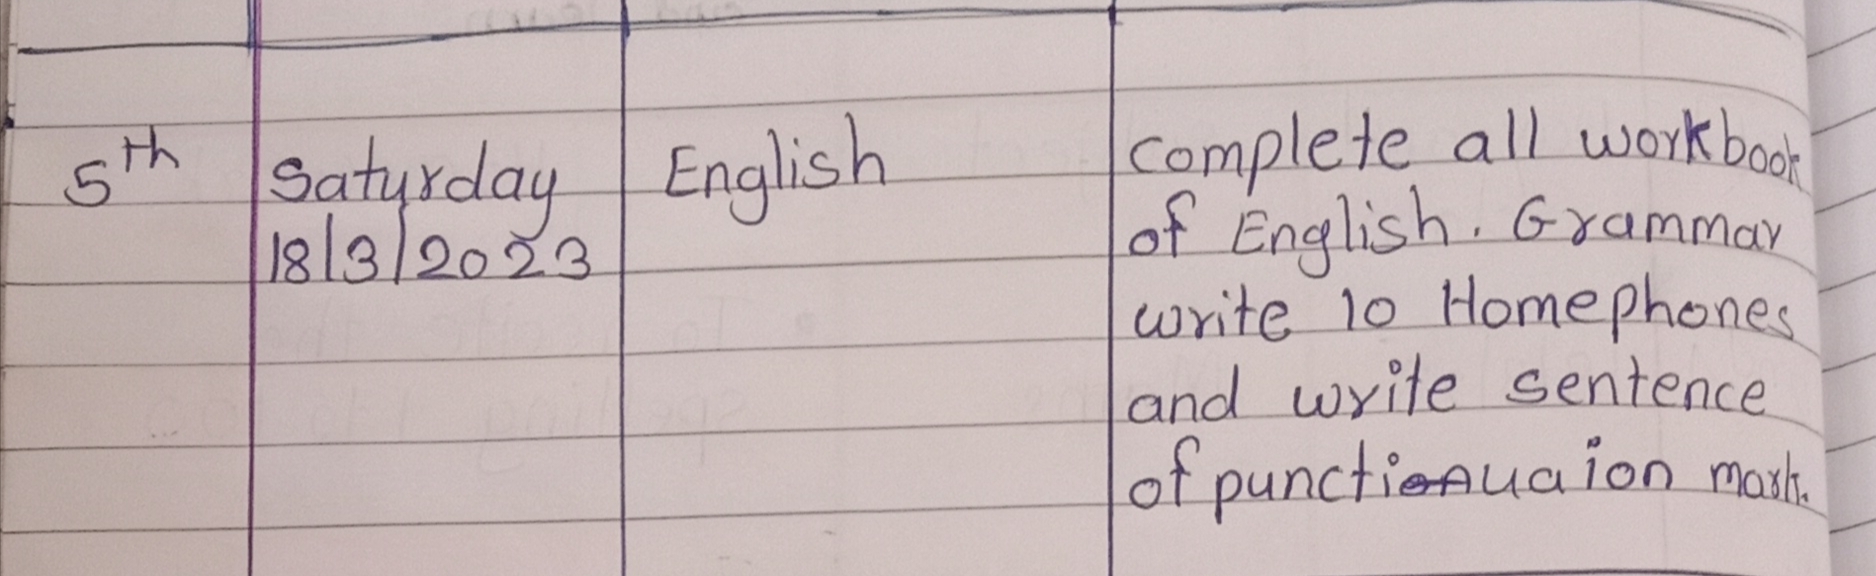 5th Saturday English Complete all workbook
18/3/2023 of English. Grammar
write 10 Homephones
and write sentence
of mark.